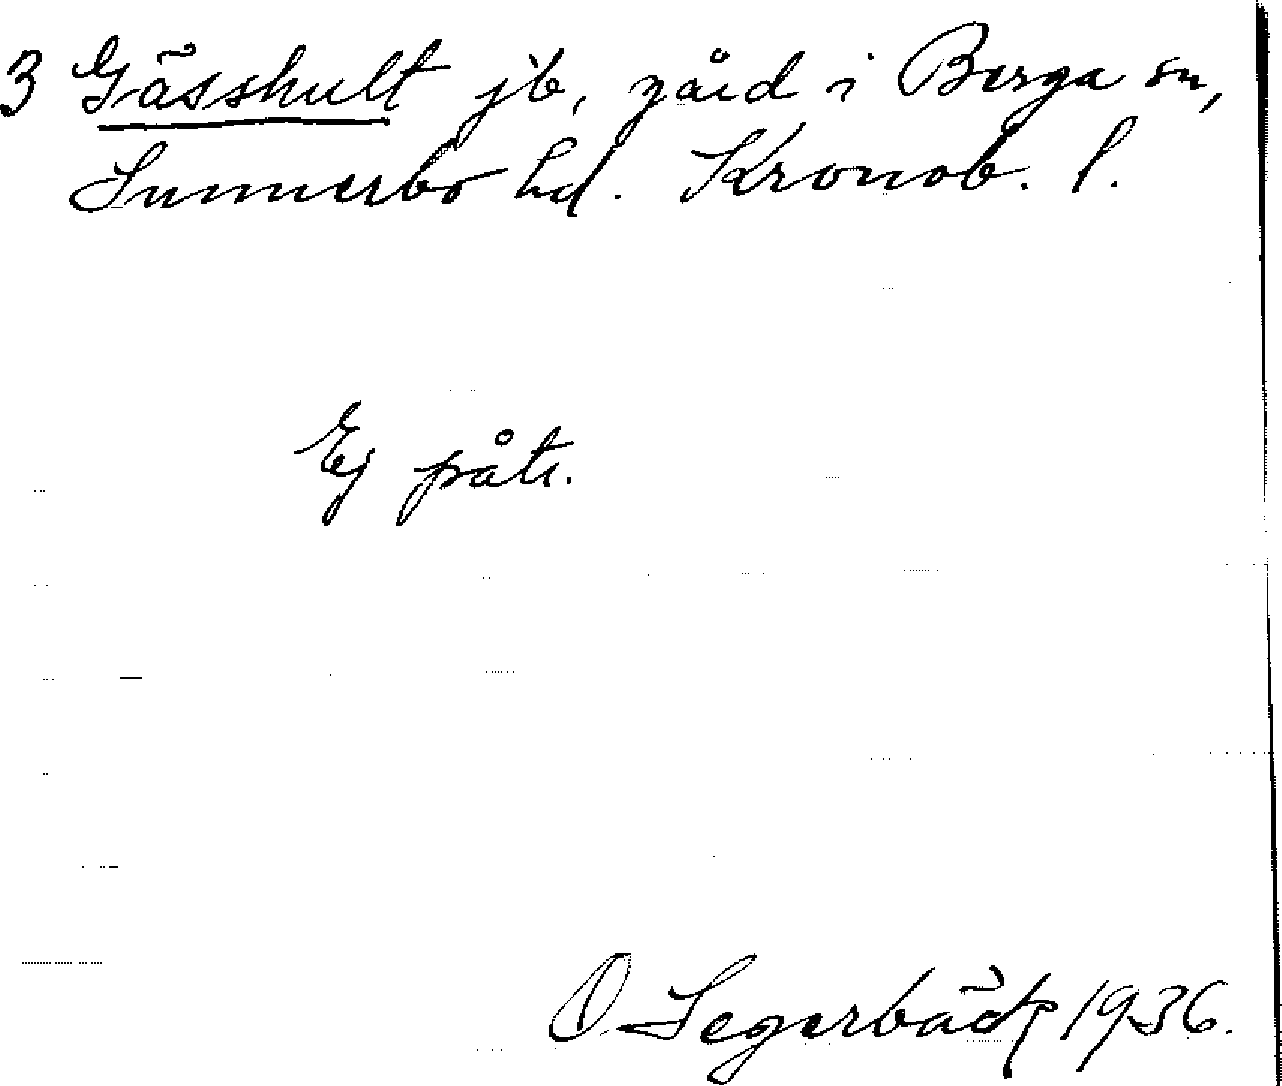 3 Gässhult jb, gård i Berga sn,
Sunnerbo hd. Kronob. l.
Ej påtr.
O. Segerbäck 1936.